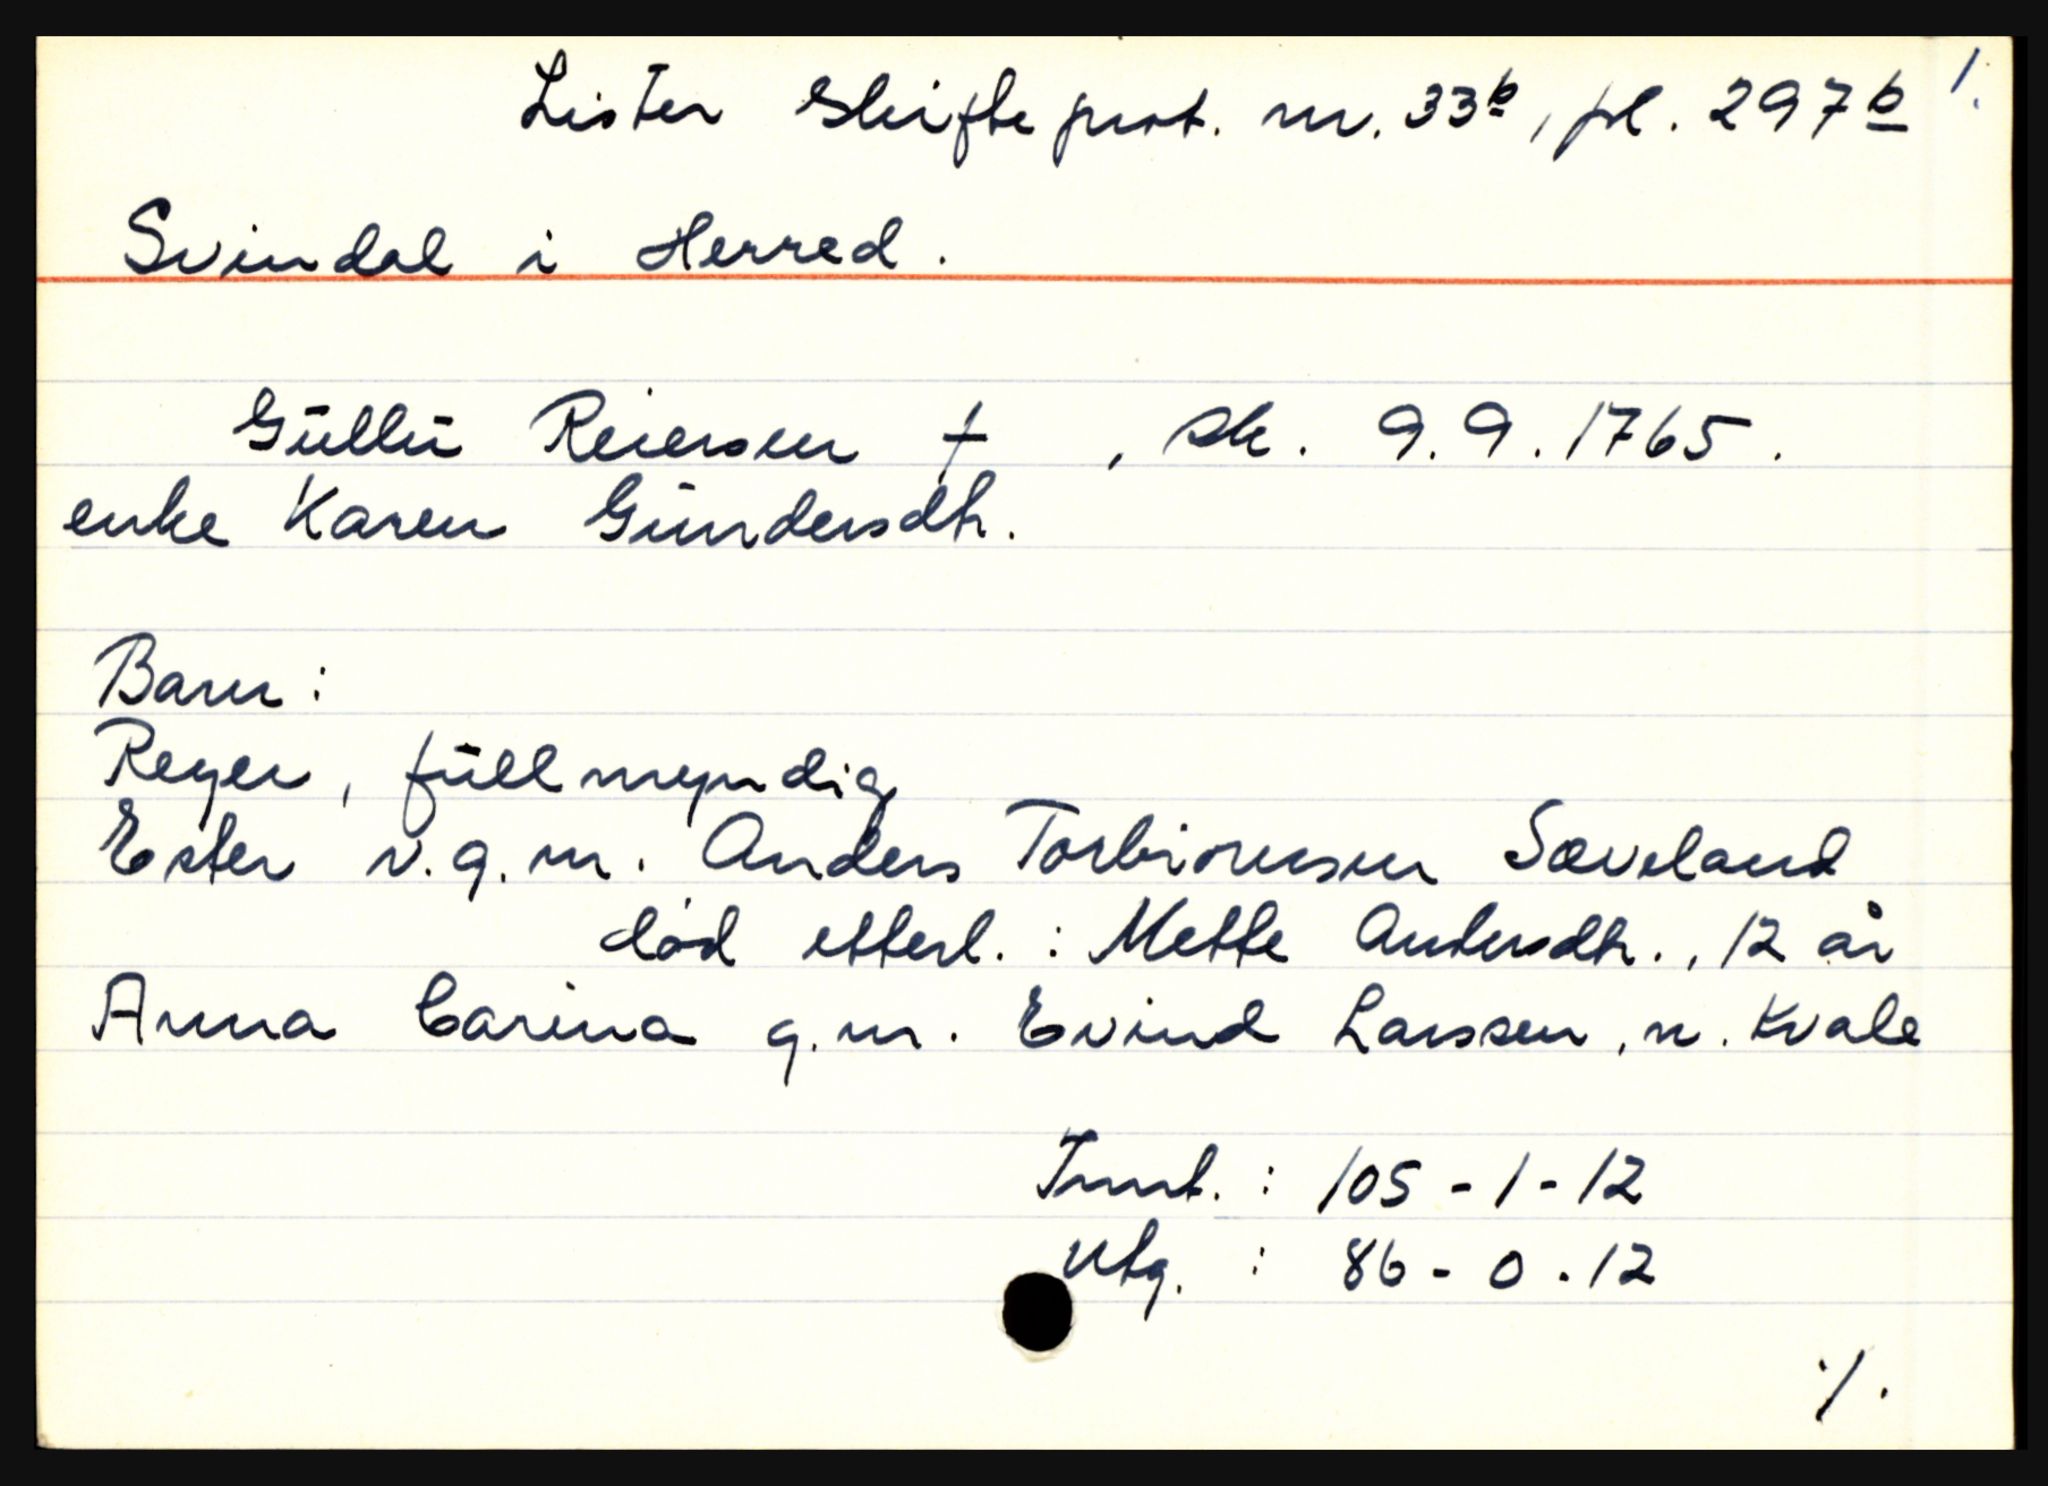 Lister Skifteprot. nr. 33b, pl. 297b 1.
Svindal i Herred.
Gullu Reiersen † , sk. 9.9.1765.
enke Karen Gundersdtr.
Barn:
Reyer, fullmyndig
Ester v.g.m. Anders Torbiornsen Sæveland
død etterl.: Mette Andersdtr., 12 år
Anna Carina g.m. Evind Larssen, n. Kvale
Innt. : 105 - 1 - 12
Utg. : 86 - 0 - 12
./.